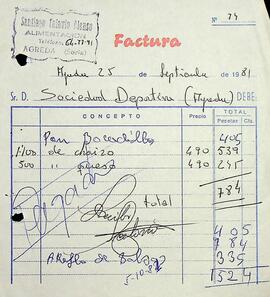 Santiago Calavia Alonso
ALIMENTACION
Teléfono, 64-77-91
AGREDA (Soria)
N.º 74
Factura
Agreda 25 de Septiembre de 1981
Sr. D. Sociedad Deportiva (Agreda) DEBE
CONCEPTO Precio TOTAL
Pesetas Cts.
Pan Bocadillos 405
1100 de chorizo 490 539
500 " queso 490 245
784
Pagado
total
405
784
Arreglo de 335
1524
5-10-81